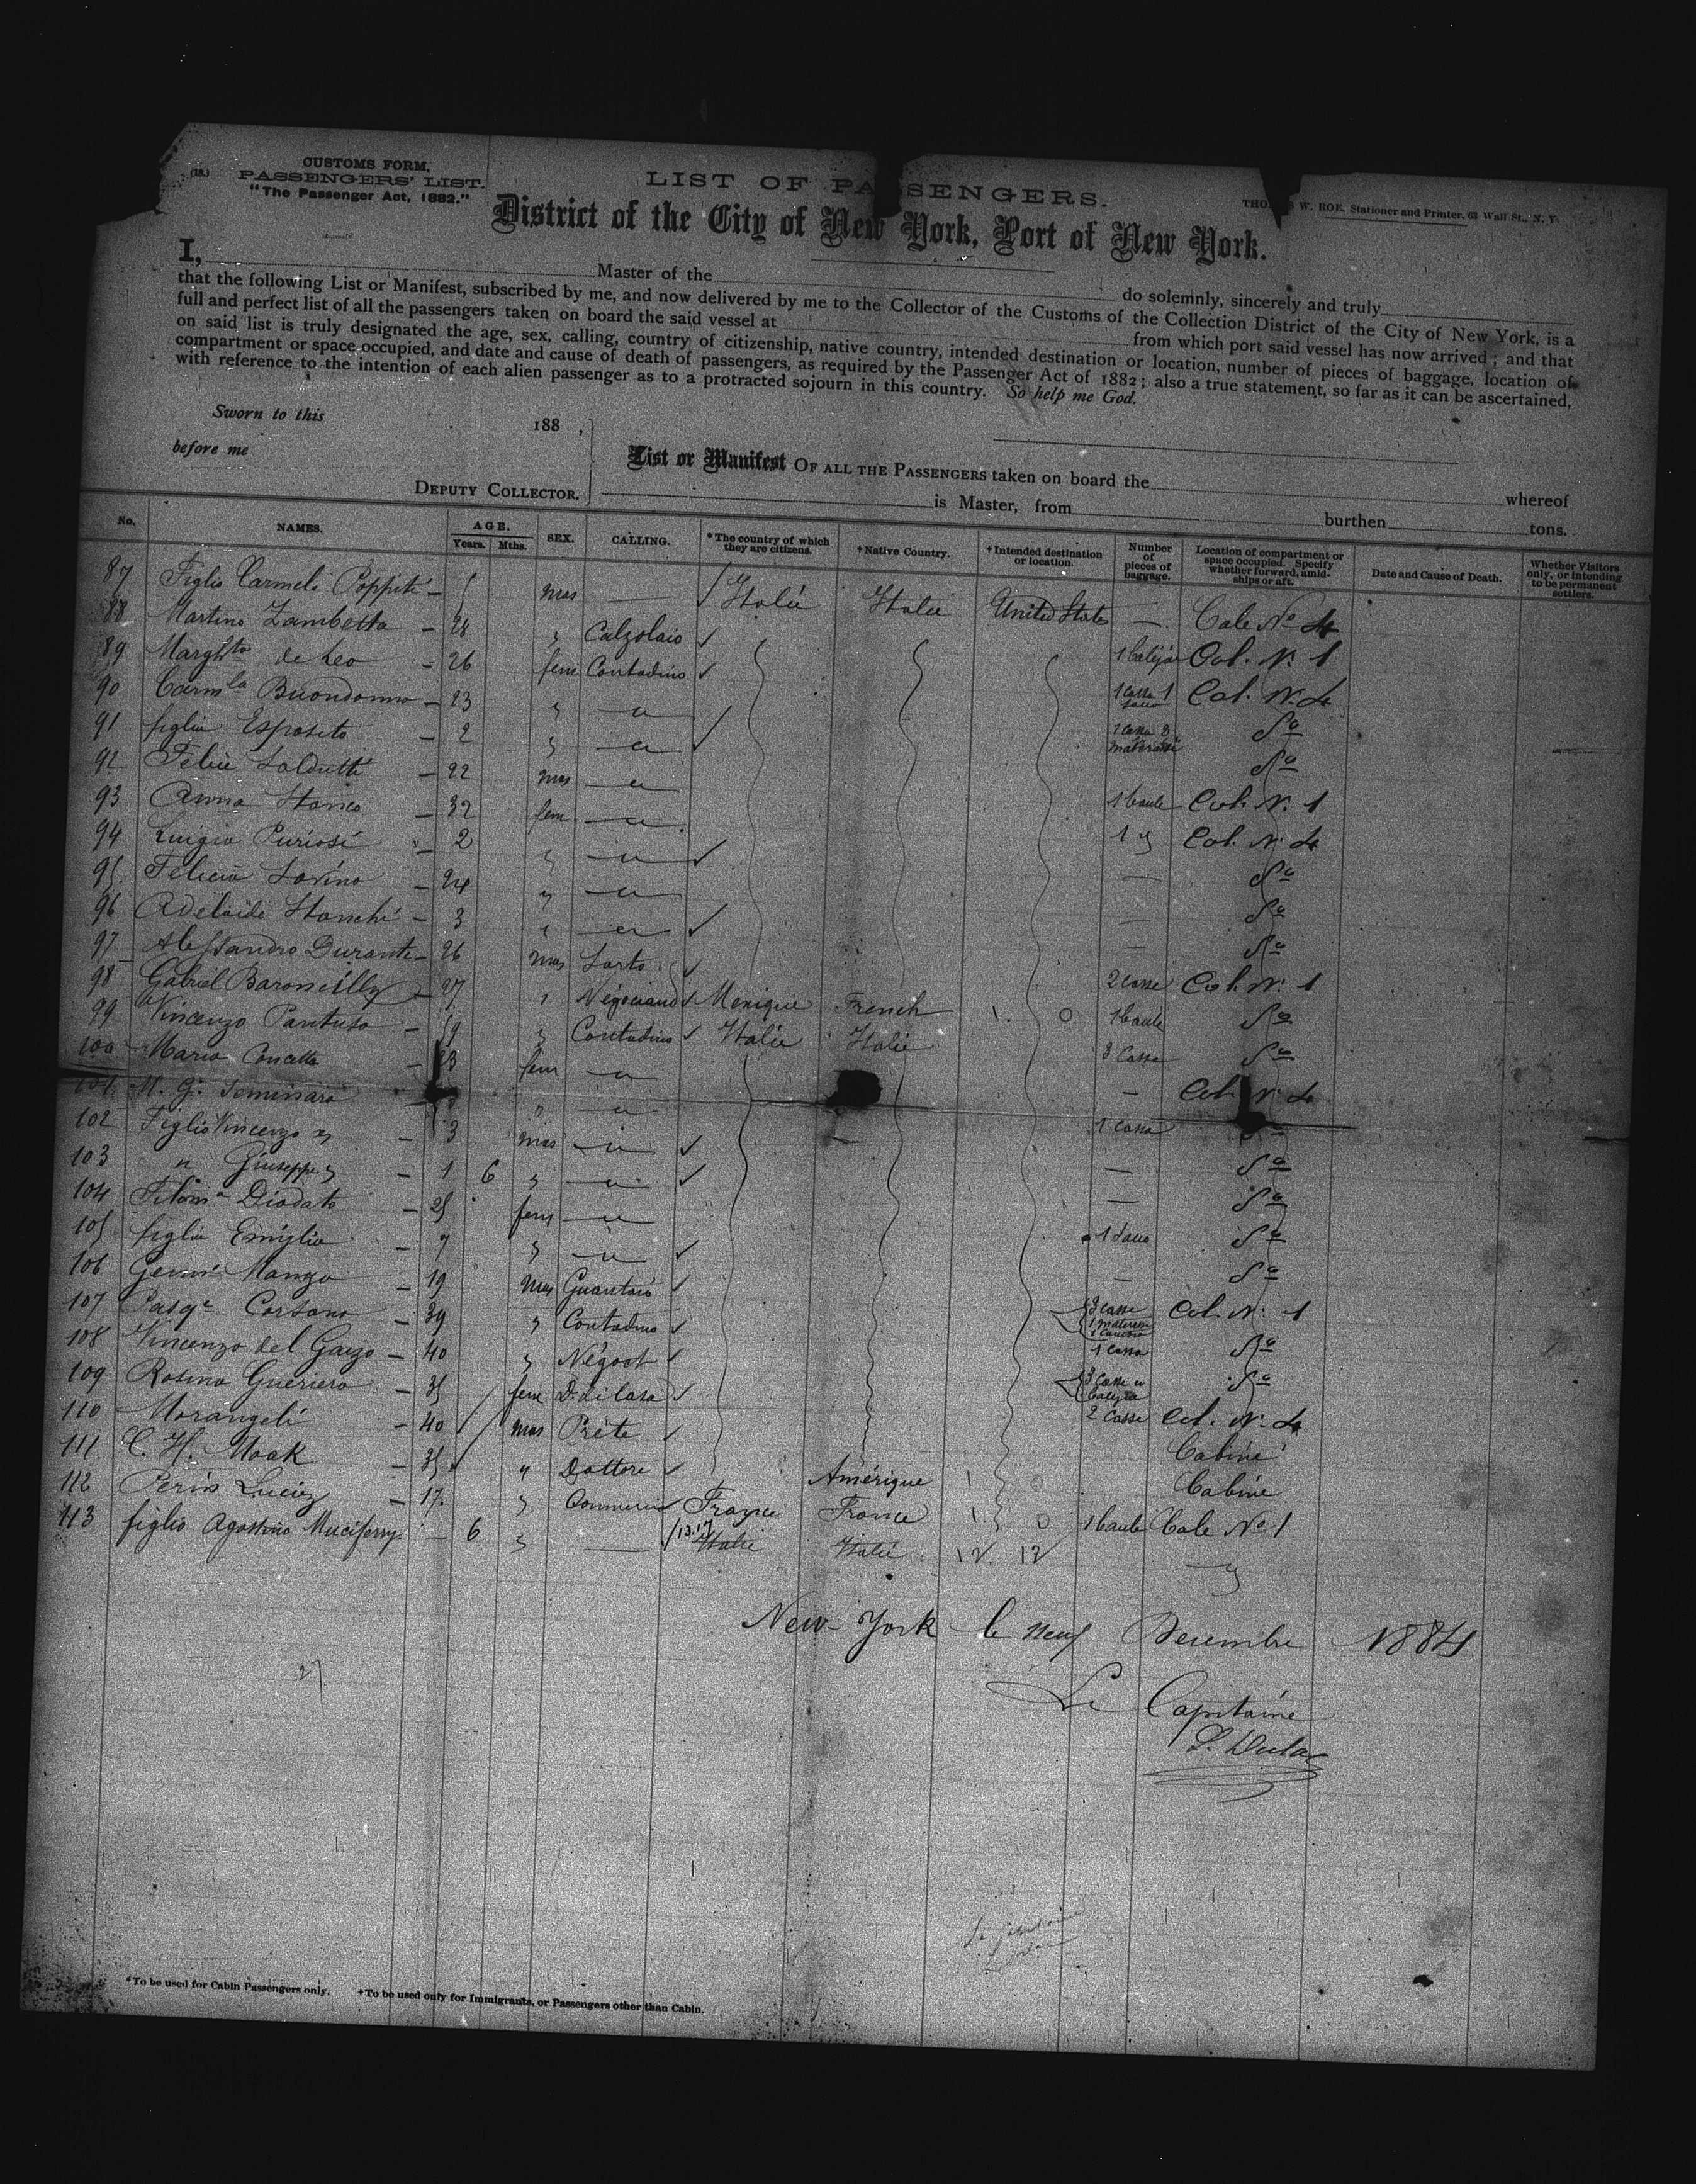 (18.)
CUSTOMS FORM,
PASSENGERS' LIST.
"The Passenger Act, 1882."
LIST OF PASSENGERS.
W. ROE, Stationer and Printer, 63 Wall St., N. Y.
District of the City of New York, Port of New York.
I, Master of the do solemnly, sincerely and truly
that the following List or Manifest, subscribed by me, and now delivered by me to the Collector of the Customs of the Collection District of the City of New York, is a
full and perfect list of all the passengers taken on board the said vessel at from which port said vessel has now arrived; and that
on said list is truly designated the age, sex, calling, country of citizenship, native country, intended destination or location, number of pieces of baggage, location of
compartment or space occupied, and date and cause of death of passengers, as required by the Passenger Act of 1882; also a true statement, so far as it can be ascertained,
with reference to the intention of each alien passenger as to a protracted sojourn in this country. So help me God.
Sworn to this 188 ,
before me
DEPUTY COLLECTOR.
List or Manifest OF ALL THE PASSENGERS taken on board the whereof
is Master, from burthen tons.
No. NAMES. AGE. Years. Mths. SEX. CALLING. *The country of which they are citizens. †Native Country. †Intended destination or location. Number of pieces of baggage. Location of compartment or space occupied. Specify whether forward, amidships or aft. Date and Cause of Death. Whether Visitors only, or intending to be permanent settlers.
87 Figlio Carmelo Poppiti mas — Italie Italie United States — Cale No 4
88 Martino Zambetta — 28 " Calzolaio Cal. N. 1
89 de Leo — 26 fem Contadino 1 Casa 1 Cal. N. 4
90 Carmla Buondonno — 23 " — " — 1 Cassa 3 Do
91 figlia Esposito — 2 " — " — Do
92 Felice — 22 mas — " — 1 baule Cal. N. 1
93 Anna — 32 fem — " — 1 " Cal. N. 4
94 Luigia Puriosi — 2 " — " — Do
95 Felicia Savino — 24 " — " — Do
96 Adelaide Stanchi — 3 " — " — Do
97 Alessandro Durante — 26 mas Sarto 2 Casse Cal. N. 1
98 Gabriel Baroncilly — 27 " Négociand Mexique French 1 baule Do
99 Vincenzo Pantuso — 19 " Contadino Italie Italie 3 Casse Do
100 Maria Concetta — 23 fem — " — — Cal. N. 4
101 M. G. Seminara " — " — 1 Cassa
102 Figlio Vincenzo " — 3 mas — " — — Do
103 " Giuseppe " — 1 6 " — " — — Do
104 Diodato — 25 fem — " — 1 Sacco Do
105 figlia Emiglia — 7 " — " — — Do
106 Manzo — 19 mas Guantaio 3 casse Cal. N. 1
107 Pasqe Corsano — 39 " Contadino 1 Cassa Do
108 Vincenzo del Gaizo — 40 " Négoct 3 Casse Do
109 Rosina Gueriero — 35 fem D. di Casa 2 Casse Cal. N. 4
110 Marangeli — 40 mas Prète Cabine
111 C. H. Mook — 35 " Dottore Amérique Cabine
112 Perin Lucien — 17 " Commerce France France 1 baule Cale No 1
113 figlio Agostino — 6 " — Italie Italie "
New-York le neuf Decembre 1884
Le Capitaine
*To be used for Cabin Passengers only. †To be used only for Immigrants, or Passengers other than Cabin.